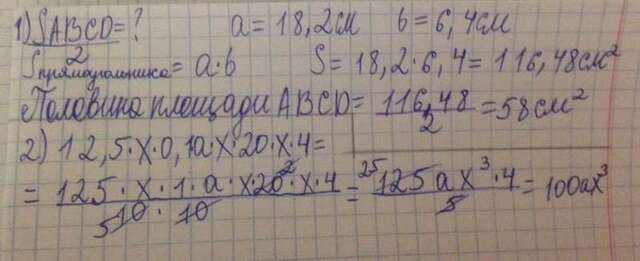 1) SABCD = ? a = 18,2см b = 6,4см
2
Sпрямоугольника = a·b S = 18,2·6,4 = 116,48см²
Половина площади ABCD = 116,48/2 = 58см²
2) 12,5·x·0,1a·x·20·x·4=
= 125·x·1·a·x·20²·x·4/5 10·10 = 25 125ax³·4/5 = 100ax³